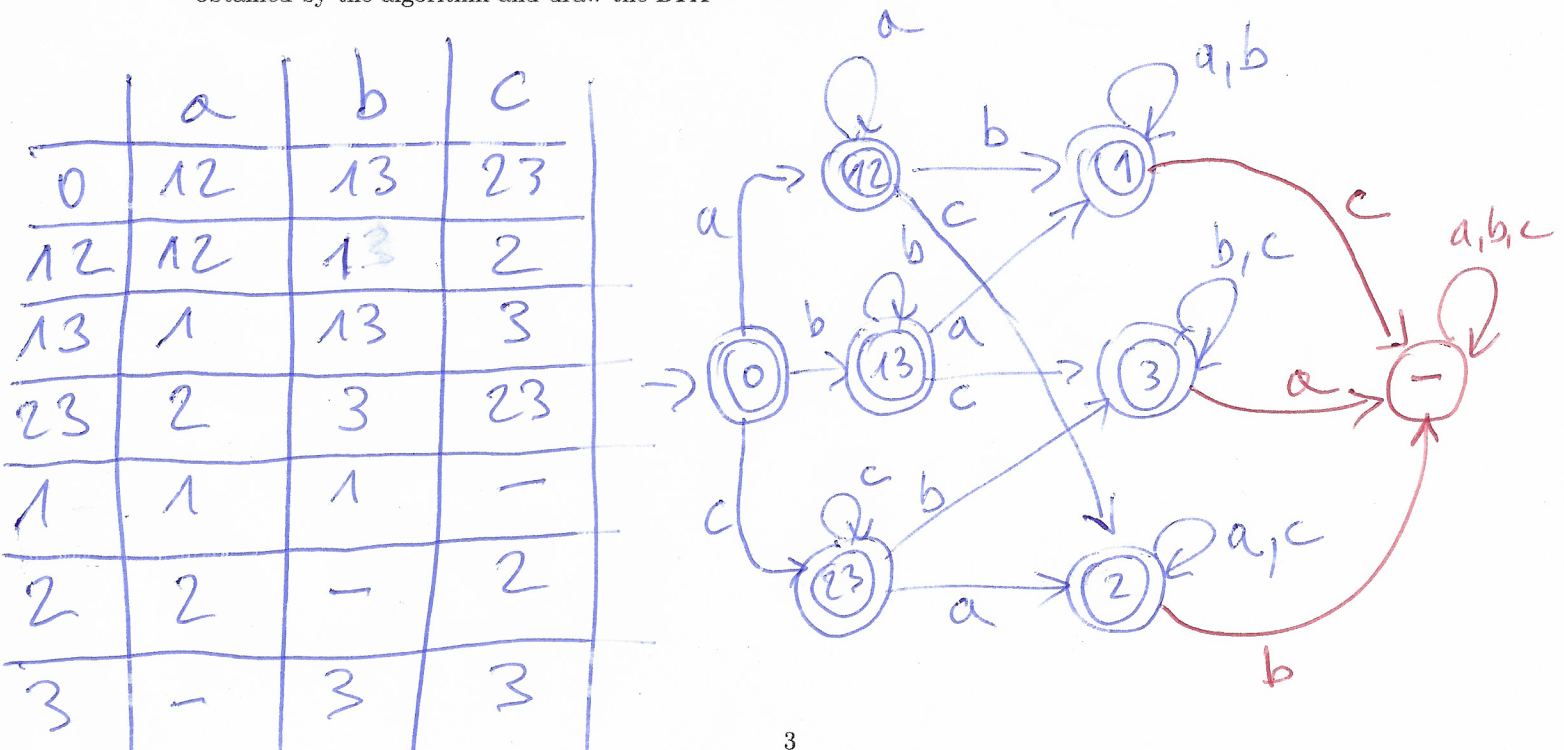 obtained by the algorithm and draw the DFA
a b c
0 12 13 23
12 12 13 2
13 1 13 3
23 2 3 23
1 1 1 –
2 2 – 2
3 – 3 3
a
a, b
12
b
1
a
c
c
b
b, c
a, b, c
b
a
0
13
c
3
a
–
c
c
b
23
a
2
a, c
b
3